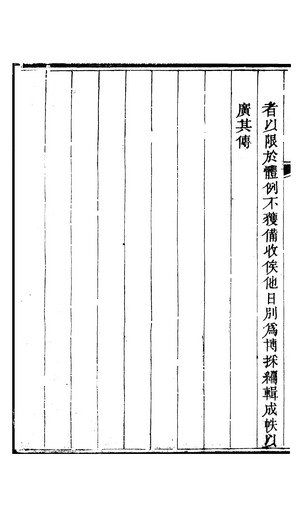 者以限於體例不獲備收俟他日別爲博採編輯成帙以
廣其傳